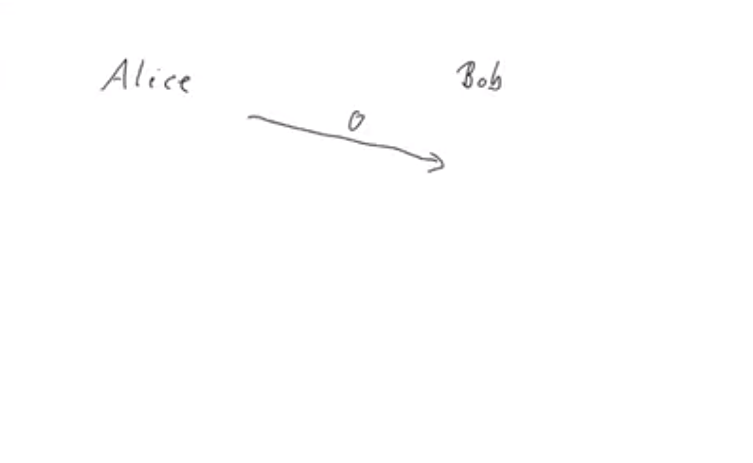 Alice Bob
0